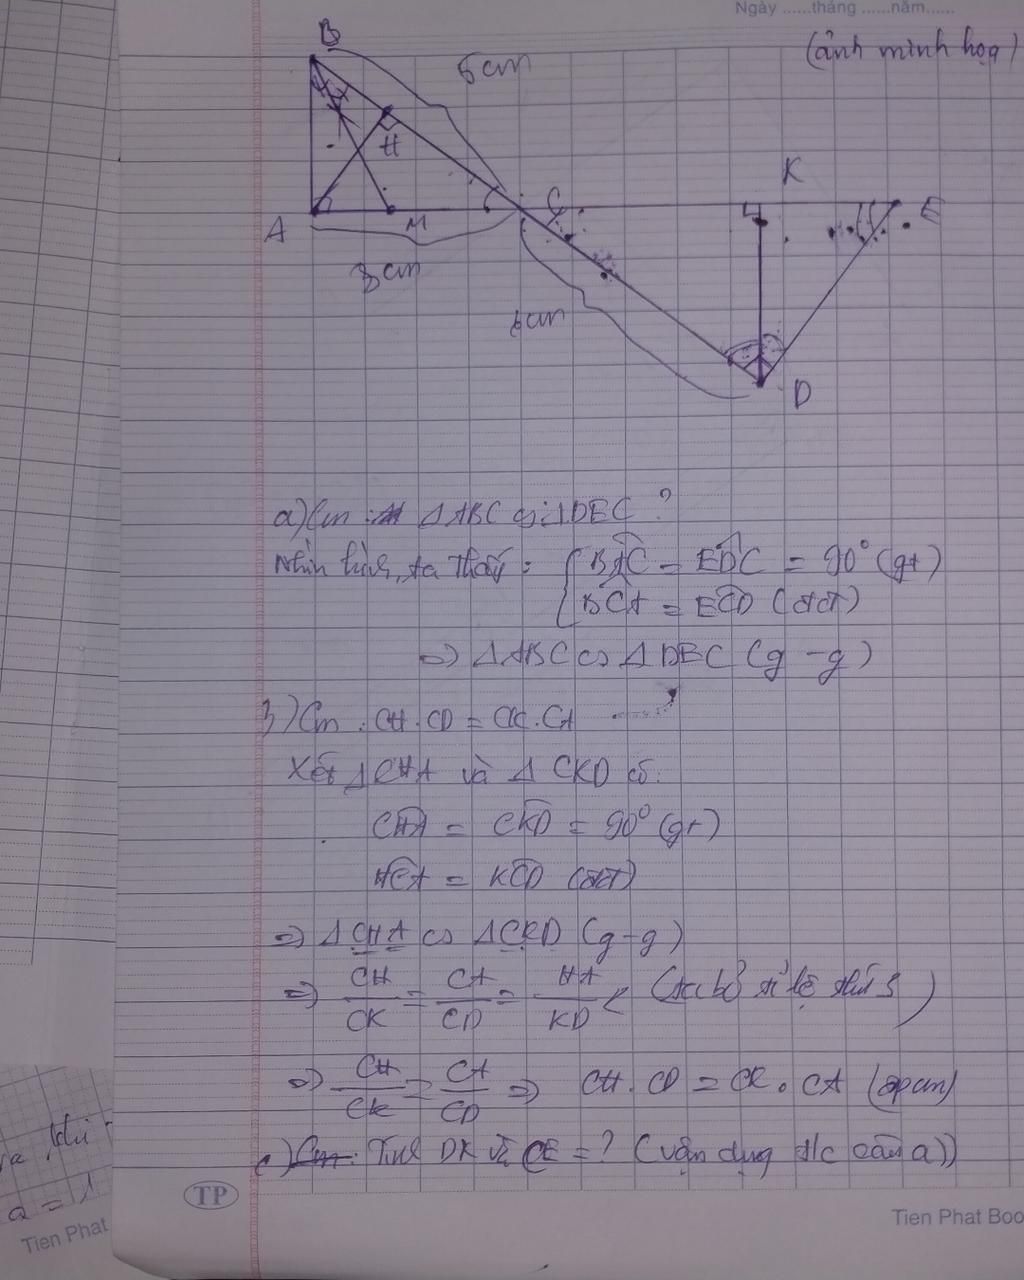 Ngày ......tháng ......năm......
(ảnh minh họa)
B
5cm
H
K
C
E
A
M
3cm
6cm
D
a) Cm : ΔABC ∽ ΔDEC ?
Nhìn hình, ta thấy : { BAC = EDC = 90° (gt)
BCA = ECD (đđ)
=> ΔABC ∽ ΔDEC (g-g)
b) Cm : CH.CD = CK.CA
Xét ΔCHA và Δ CKD có:
CHA = CKD = 90° (gt)
HCA = KCD (đđ)
=> ΔCHA ∽ ΔCKD (g-g)
=> CH/CK = CA/CD = HA/KD (ta bỏ tỉ lệ thứ 3)
=> CH/CK = CA/CD => CH.CD = CK.CA (đpcm)
c) Cm: Tính DK và CE = ? (vận dụng t/c câu a))
khi
a = 1
Tien Phat
TP
Tien Phat Boo